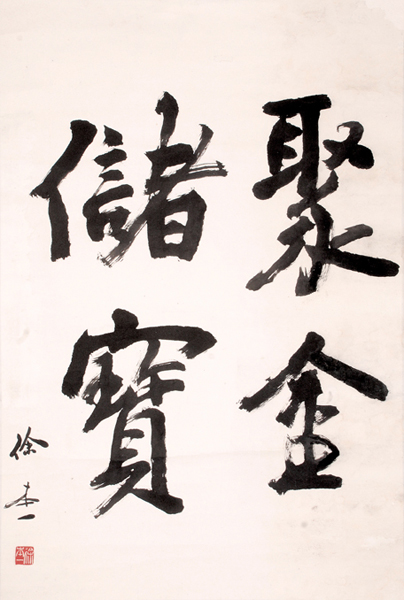 聚金
儲寶
徐本一